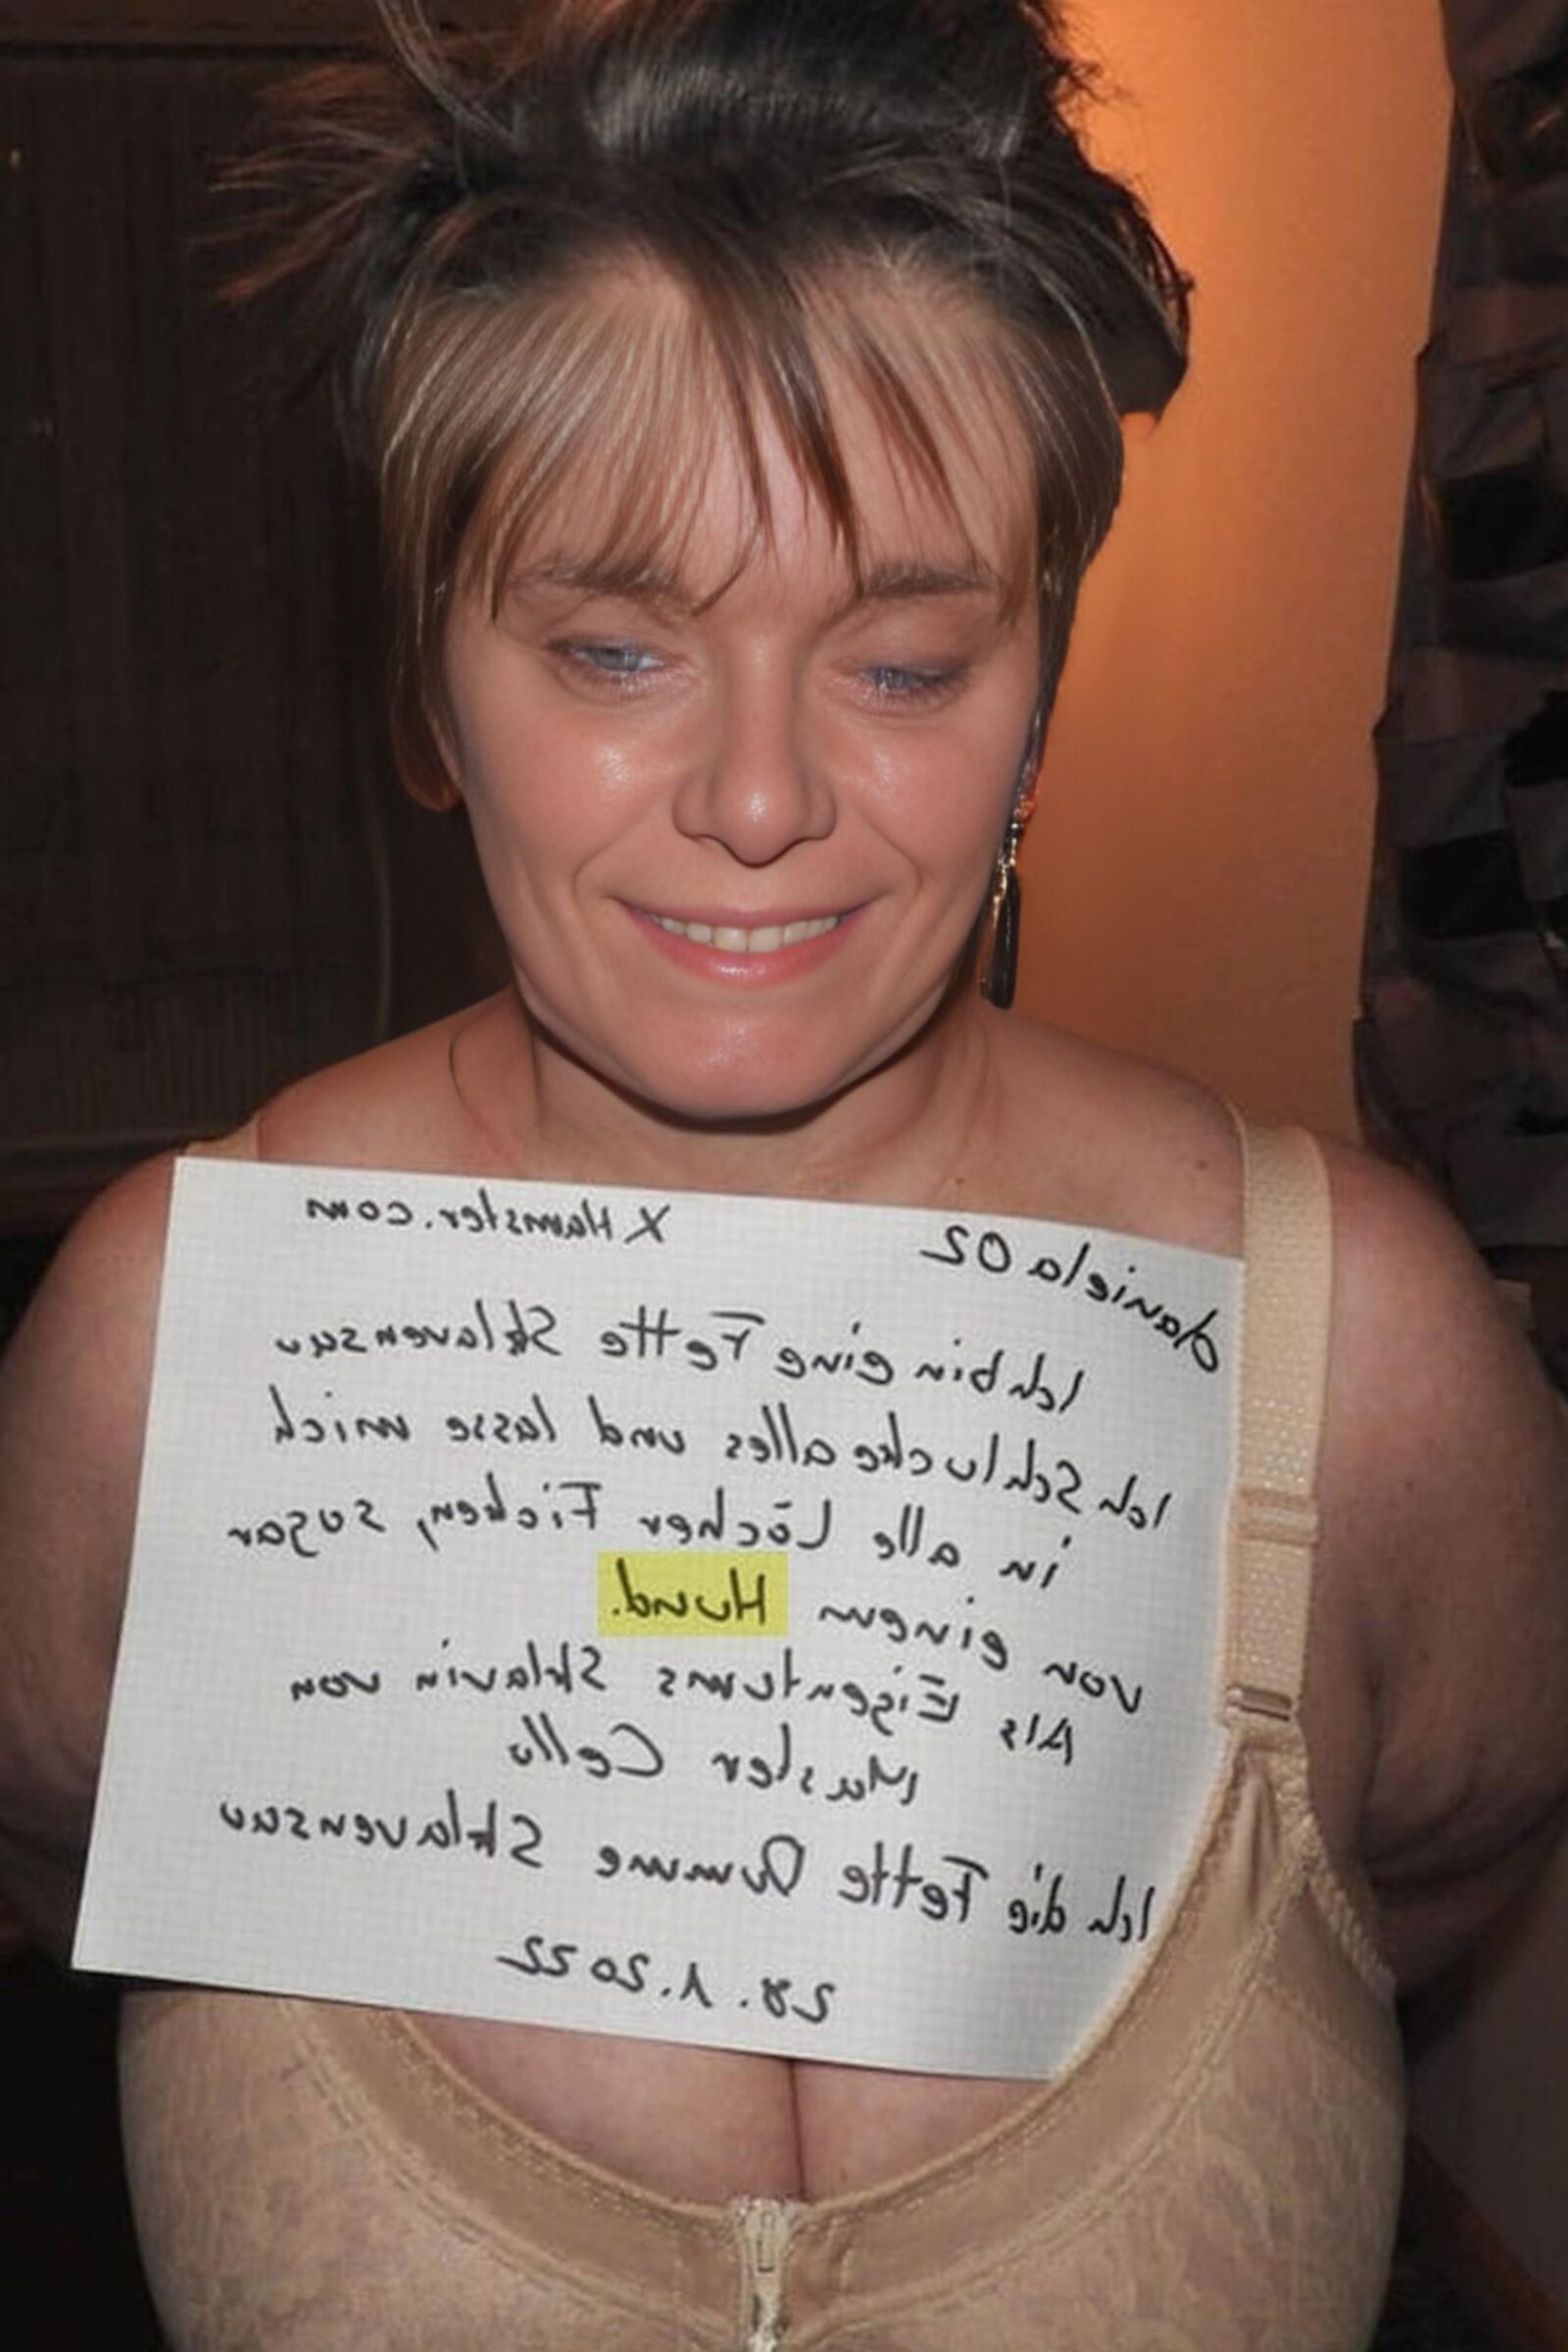 daniela02 XHamster.com
Ich bin eine Fette Sklavensau
Ich Schlucke alles und lasse mich
in alle Löcher Ficken, sogar
von einem Hund.
Als Eigentums Sklavin von
Master Cello
Ich die Fette Dumme Sklavensau
28.1.2022